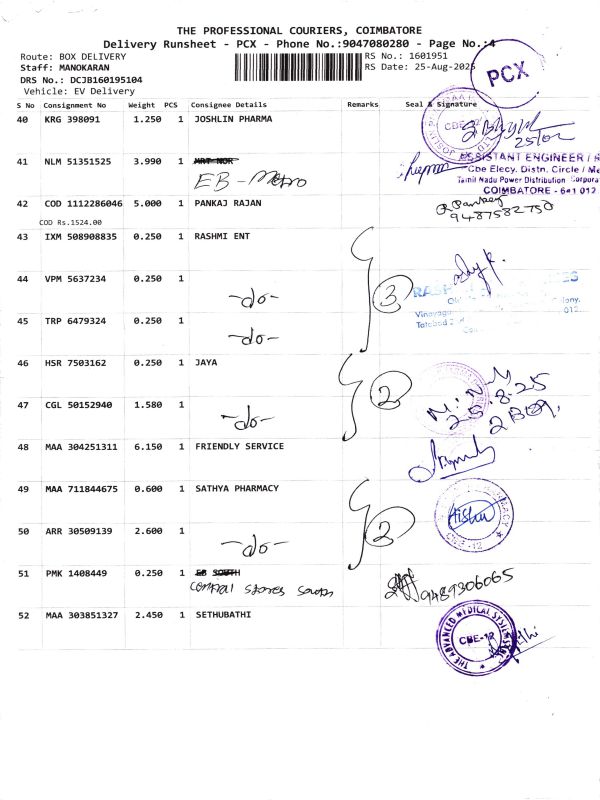 THE PROFESSIONAL COURIERS, COIMBATORE
Delivery Runsheet - PCX - Phone No.:9047080280 - Page No.:4
Route: BOX DELIVERY
Staff: MANOKARAN
DRS No.: DCJB160195104
Vehicle: EV Delivery
RS No.: 1601951
RS Date: 25-Aug-2025
PCX
S No Consignment No Weight PCS Consignee Details Remarks Seal & Signature
40 KRG 398091 1.250 1 JOSHLIN PHARMA
25/02
41 NLM 51351525 3.990 1 MRT NOR
EB - Metro
ASSISTANT ENGINEER /
Cbe Elecy. Distn. Circle / Me
Tamil Nadu Power Distribution Corpora
COIMBATORE - 641 012
42 COD 1112286046 5.000 1 PANKAJ RAJAN
COD Rs.1524.00
R Pankaj
9487582750
43 IXM 508908835 0.250 1 RASHMI ENT
44 VPM 5637234 0.250 1
-do-
3
45 TRP 6479324 0.250 1
-do-
46 HSR 7503162 0.250 1 JAYA
2
47 CGL 50152940 1.580 1
-do-
25.8.25
48 MAA 304251311 6.150 1 FRIENDLY SERVICE
49 MAA 711844675 0.600 1 SATHYA PHARMACY
2
CBE-12
50 ARR 30509139 2.600 1
-do-
51 PMK 1408449 0.250 1 EB SOUTH
central stores south
9489306065
52 MAA 303851327 2.450 1 SETHUBATHI
THE ADVANCED MEDICAL SYSTEMS
CBE-12